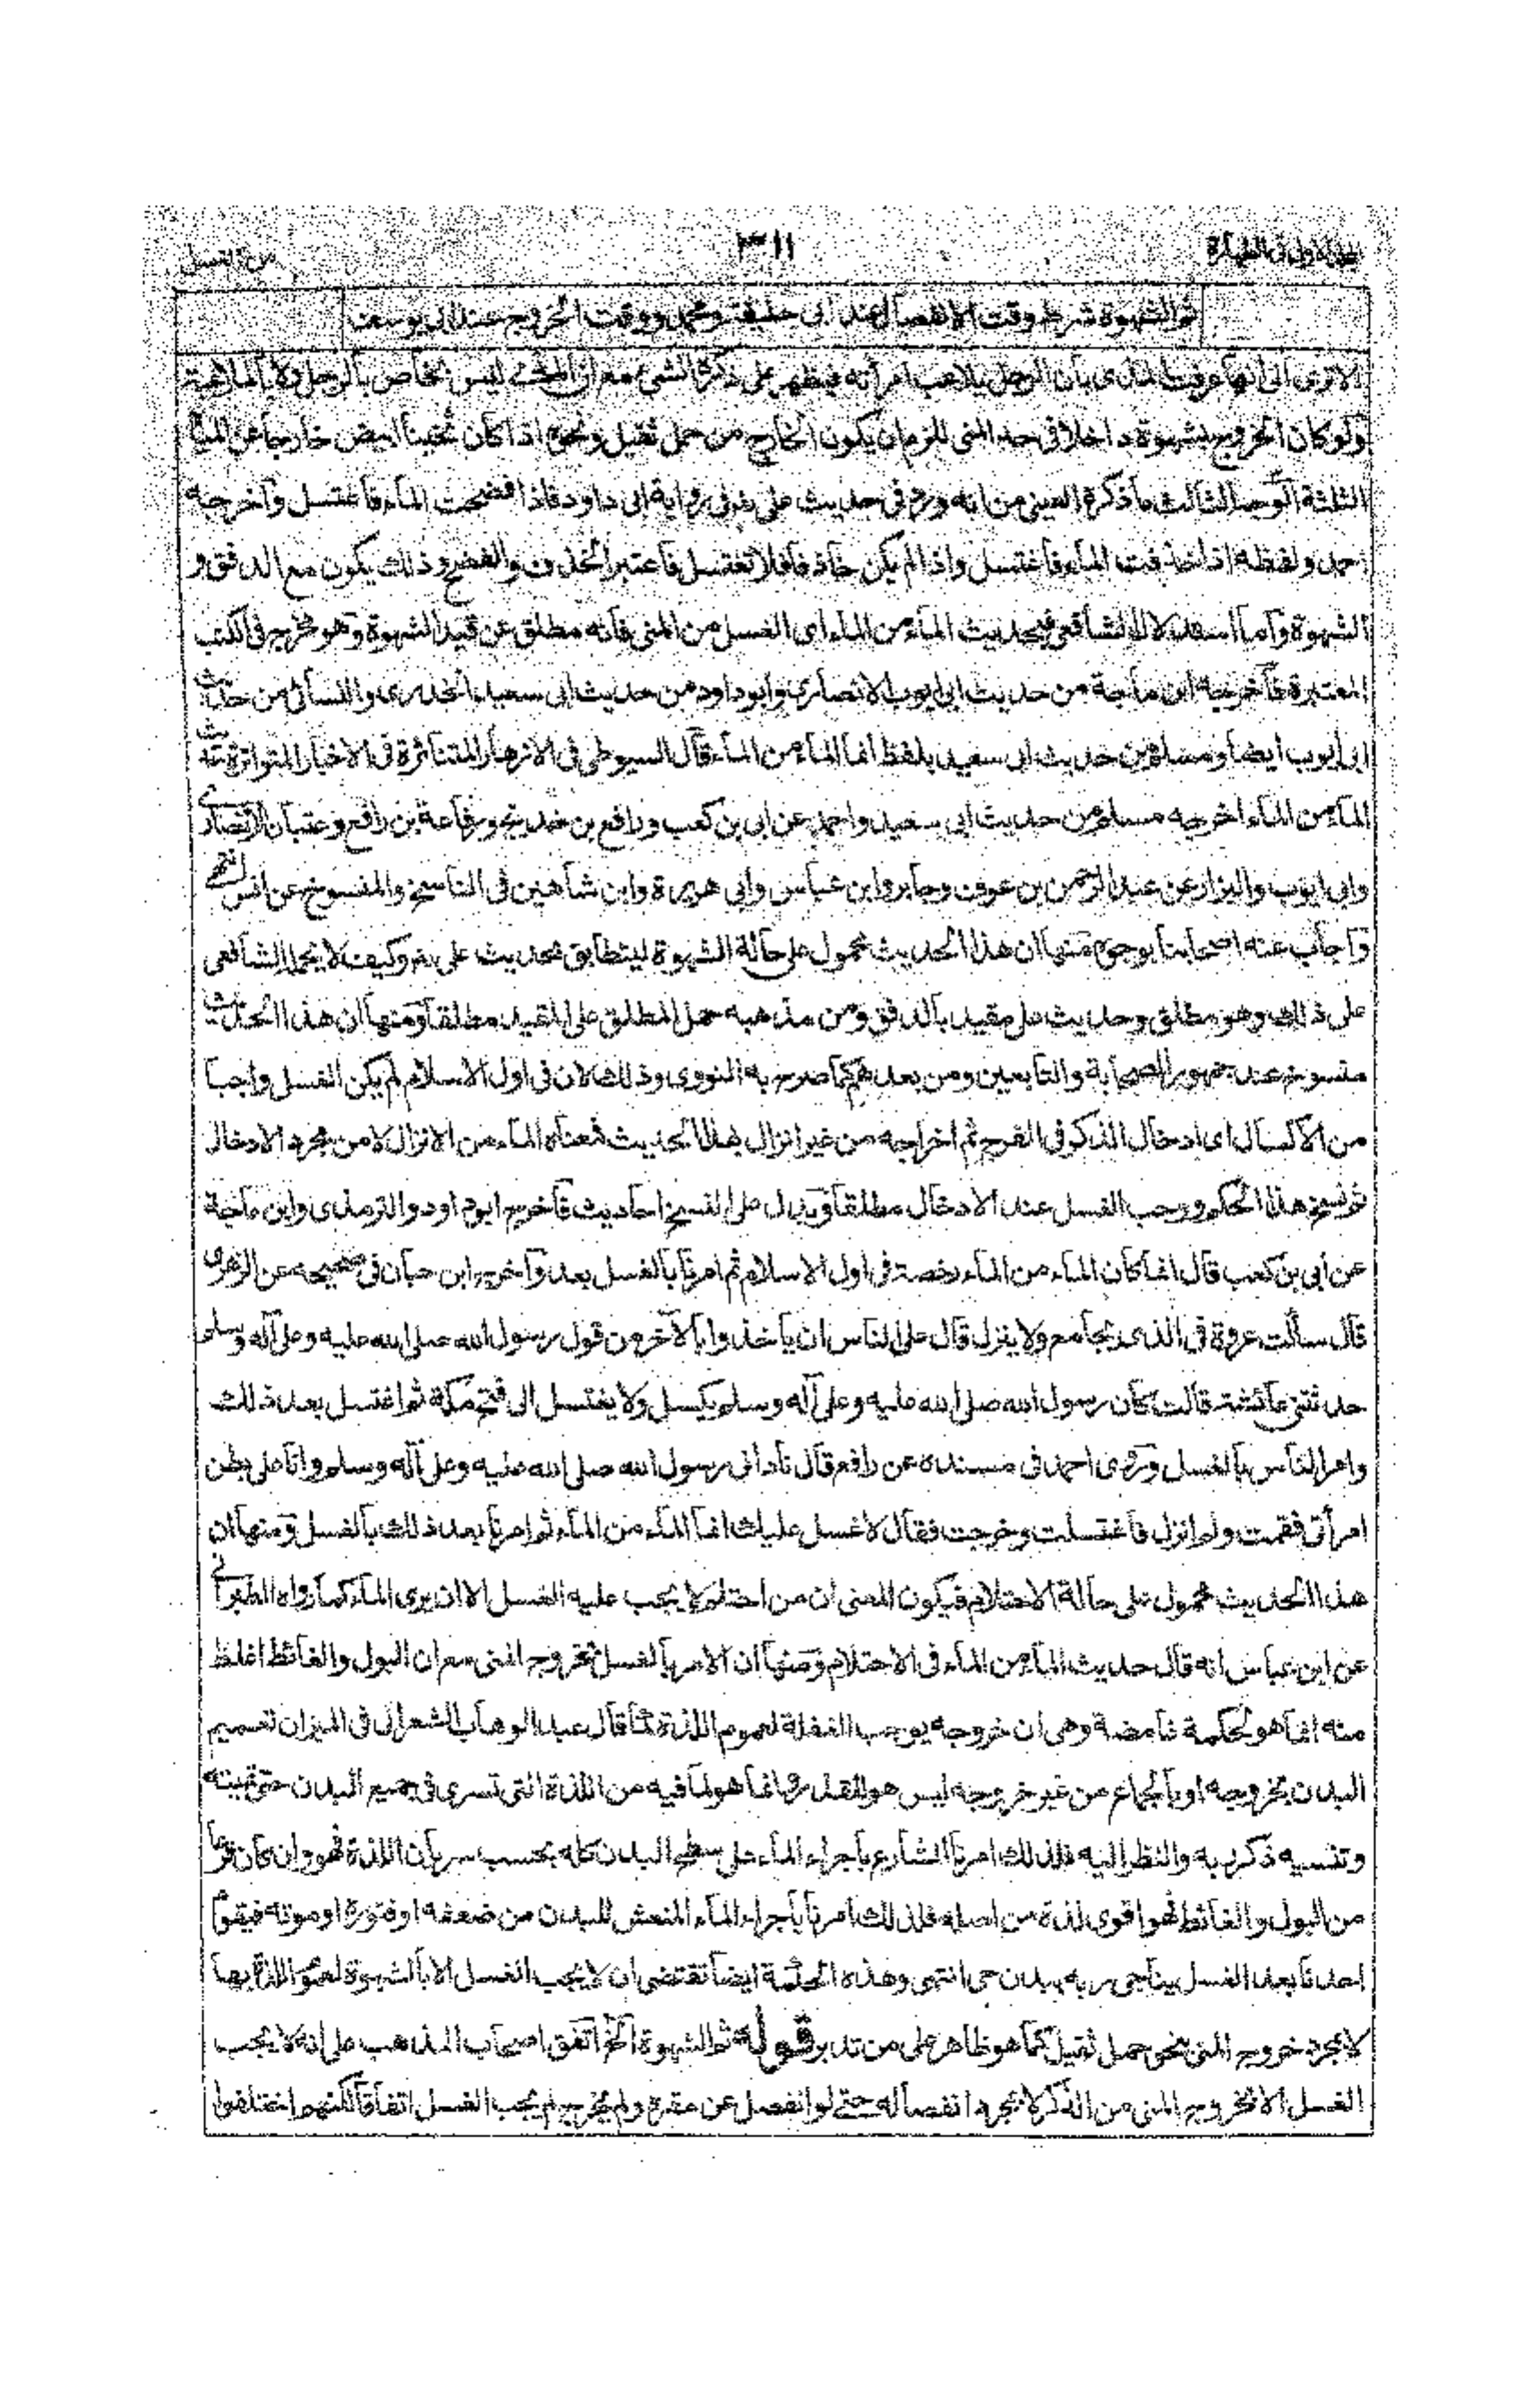 ٣١١
من الغسل
ثم الشهوة شرط وقت الانفصال عند ابى حنيفة ومحمد ووقت الخروج عند ابى يوسف
الا ترى الى انها عرفت المذى بان الرجل يلاعب امرأته فيظهر على ذكره الشئ مع ان المذى ليس بخاص بالرجل ولا بالملاعبة
ولو كان الخروج بشهوة داخلا فى حد المنى للزم ان يكون الخارج من حمل ثقيل ونحوه اذا كان ثخينا ابيض خارجا عن المياه
الثلثة الوجه الثالث ما ذكره العينى من انه ورد فى حديث على رض فى رواية ابى داود فاذا فضخت الماء فاغتسل وآخرجه
احمد ولفظه اذا خذفت الماء فاغتسل واذا لم يكن خاذفا فلا تغتسل فاعتبر الخذف والفضخ وذلك يكون مع الدفق و
الشهوة وآما استدلال الشافعى فبحديث الماء من الماء اى الغسل من المنى فانه مطلق عن قيد الشهوة وهو مخرج فى الكتب
المعتبرة فاخرجه ابن ماجة من حديث ابى ايوب الانصارى وابو داود من حديث ابى سعيد الخدرى والنسائى من حديث
ابى ايوب ايضا ومسلم من حديث ابى سعيد بلفظ انما الماء من الماء قال السيوطى فى الازهار المتناثرة فى الاخبار المتواترة حديث
الماء من الماء اخرجه مسلم من حديث ابى سعيد واحمد عن ابى بن كعب ورافع بن خديج ورفاعة بن رافع وعتبان الانصارى
وابى ايوب والبزار عن عبد الرحمن بن عوف وجابر وابن عباس وابى هريرة وابن شاهين فى الناسخ والمنسوخ عن انس انتهى
وآجاب عنه اصحابنا بوجوه منها ان هذا الحديث محمول على حالة الشهوة ليتطابق بحديث على رض وكيف لا يحمل الشافعى
على ذلك وهو مطلق وحديث على مقيد بالدفق ومن مذهبه حمل المطلق على المقيد مطلقا ومنها ان هذا الحديث
منسوخ عند جمهور الصحابة والتابعين ومن بعدهم كما صرح به النووى وذلك لان فى اول الاسلام لم يكن الغسل واجبا
من الاكسال اى ادخال الذكر فى الفرج ثم اخراجه من غير انزال بهذا الحديث فمعناه الماء من الانزال لا من مجرد الادخال
ثم نسخ هذا الحكم ووجب الغسل عند الادخال مطلقا ويدل على النسخ احاديث فاخرج ابو داود والترمذى وابن ماجة
عن ابى بن كعب قال انما كان الماء من الماء رخصة فى اول الاسلام ثم امرنا بالغسل بعد وآخرج ابن حبان فى صحيحه عن الزهرى
قال سألت عروة فى الذى يجامع ولا ينزل قال على الناس ان ياخذوا بالآخر من قول رسول الله صلى الله عليه وعلى آله وسلم
حدثتنى عائشة قالت كان رسول الله صلى الله عليه وعلى آله وسلم يكسل ولا يغتسل الى فتح مكة ثم اغتسل بعد ذلك
وامر الناس بالغسل وروى احمد فى مسنده عن رافع قال نادانى رسول الله صلى الله عليه وعلى آله وسلم وانا على بطن
امرأتى فقمت ولم انزل فاغتسلت وخرجت فقال لا غسل عليك انما الماء من الماء ثم امرنا بعد ذلك بالغسل ومنها ان
هذا الحديث محمول على حالة الاحتلام فيكون المعنى ان من احتلم لا يجب عليه الغسل الا ان يرى الماء كما رواه الطبرانى
عن ابن عباس انه قال حديث الماء من الماء فى الاحتلام ومنها ان الامر بالغسل بخروج المنى مع ان البول والغائط اغلظ
منه انما هو لحكمة غامضة وهى ان خروجه يوجب الغفلة لعموم اللذة كما قال عبد الوهاب الشعرانى فى الميزان تعميم
البدن بخروجه او بالجماع من غير خروجه ليس هو للقذر وانما هو لما فيه من اللذة التى تسرى فى جميع البدن حتى تميته
وتنسيه ذكر ربه والنظر اليه فلذلك امرنا الشارع باجراء الماء على سطح البدن كله بحسب سريان اللذة فهو وان كان فرعا
من البول والغائط فهو اقوى لذة من اصله فلذلك امرنا باجراء الماء المنعش للبدن من ضعفه او فتوره او موته فيقوم
احدنا بعد الغسل يناجى ربه ببدن حى انتهى وهذه الحكمة ايضا تقتضى ان لا يجب الغسل الا بالشهوة لعموم اللذة بها
لا بمجرد خروج المنى بنحو حمل ثقيل كما هو ظاهر على من تدبر قوله ثم الشهوة الخ اتفق اصحاب المذاهب على انه لا يجب
الغسل الا بخروج المنى من الذكر لا بمجرد انفصاله حتى لو انفصل عن مقره ولم يخرج لم يجب الغسل اتفاقا لكنهم اختلفوا